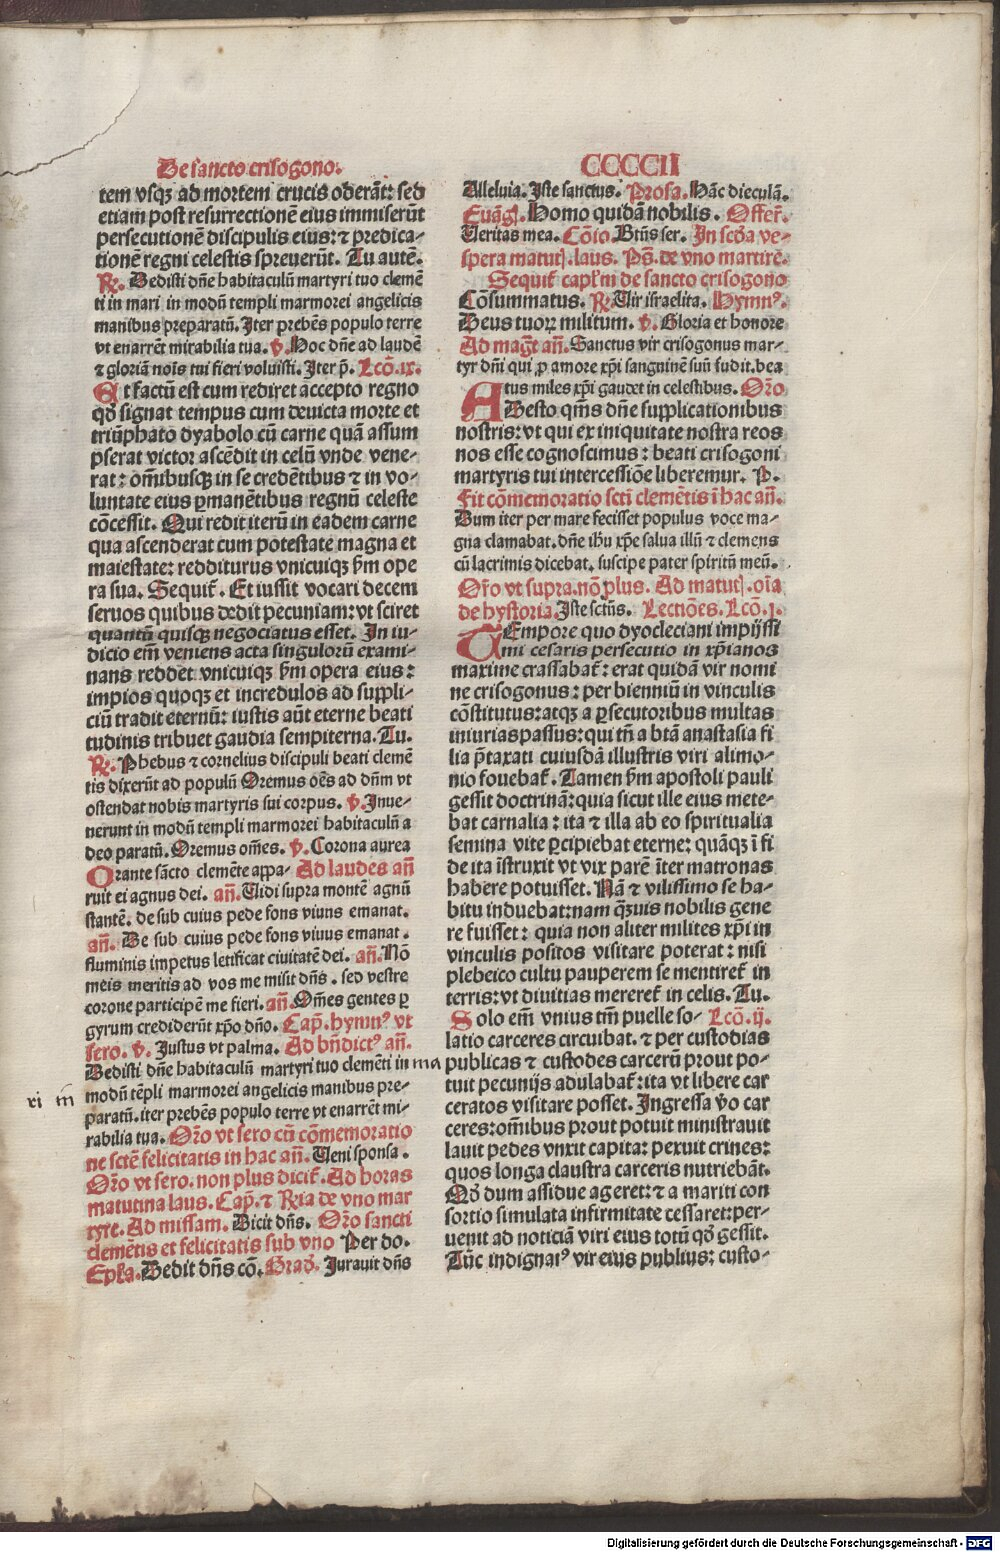 De sancto crisogono.
CCCCCII
tem vsqꝫ ad mortem crucis oderāt: sed
etiam post resurrectionē eius immiserūt
persecutionē discipulis eius: ⁊ predica-
tionē regni celestis spreuerūt. Tu autē.
R̄. Dedisti dn̄e habitaculū martyri tuo clemē
ti in mari in modū templi marmorei angelicis
manibus preparatū. Iter prebēs populo terre
vt enarrēt mirabilia tua. v̄. Hoc dn̄e ad laudē
⁊ gloriā noīs tui fieri voluisti. Iter p̄. Lcō.ix.
Et factū est cum rediret accepto regno
qđ signat tempus cum deuicta morte et
triūphato dyabolo cū carne quā assum
pserat victor ascēdit in celū vnde vene-
rat: om̄ibusqꝫ in se credētibus ⁊ in vo-
luntate eius ꝑmanētibus regnū celeste
cōcessit. Qui redit iterū in eadem carne
qua ascenderat cum potestate magna et
maiestate: redditurus vnicuiqꝫ ẜm ope
ra sua. Sequit̄. Et iussit vocari decem
seruos quibus dedit pecuniam: vt sciret
quantū quisqꝫ negociatus esset. In iu-
dicio em̄ veniens acta singulorū exami-
nans reddet vnicuiqꝫ ẜm opera eius:
impios quoqꝫ et incredulos ad suppli-
ciū tradit eternū: iustis aūt eterne beati
tudinis tribuet gaudia sempiterna. Tu.
R̄. Phebus ⁊ cornelius discipuli beati clemē
tis dixerūt ad populū Oremus oēs ad dn̄m vt
ostendat nobis martyris sui corpus. v̄. Inue-
nerunt in modū templi marmorei habitaculū a
deo paratū. Oremus om̄es. v̄. Corona aurea
Orante sācto clemēte appa- Ad laudes an̄
ruit ei agnus dei. an̄. Vidi supra montē agnū
stantē. de sub cuius pede fons viuus emanat.
an̄. De sub cuius pede fons viuus emanat.
fluminis impetus letificat ciuitatē dei. an̄. Nō
meis meritis ad vos me misit dn̄s. sed vestre
corone participē me fieri. an̄. Om̄es gentes ꝑ
gyrum crediderūt xp̄o dn̄o. Cap̄. hymnꝰ vt
sero. v̄. Justus vt palma. Ad bn̄dictꝰ an̄.
Dedisti dn̄e habitaculū martyri tuo clemēti in ma
ri in modū tēpli marmorei angelicis manibus pre-
paratū. iter prebēs populo terre vt enarrēt mi-
rabilia tua. Or̄o vt sero cū cōmemoratio
ne sctē felicitatis in hac an̄. Veni sponsa.
Or̄o vt sero. non plus dicit̄. Ad horas
matutina laus. Cap̄. ⁊ R̄ia de vno mar
tyre. Ad missam. Dicit dn̄s. Or̄o sancti
clemētis et felicitatis sub vno Per do.
Ep̄la. Dedit dn̄s cō. Grad̄. Jurauit dn̄s
Alleluia. Iste sanctus. Prosa. Hāc dieculā.
Euāgl̄. Homo quidā nobilis. Offert̄.
Veritas mea. Cōio. Btūs ser. In scđa ve-
spera matut̄. laus. Ps̄. de vno martire.
Sequit̄ capl̄m de sancto crisogono
Cōsummatus. R̄ Vir israelita. Hymnꝰ.
Deus tuoꝝ militum. v̄. Gloria et honore
Ad maḡt an̄. Sanctus vir crisogonus mar-
tyr dn̄i qui ꝓ amore xp̄i sanguinē suū fudit. bea
tus miles xp̄i gaudet in celestibus. Or̄o
Adesto qm̄s dn̄e supplicationibus
nostris: vt qui ex iniquitate nostra reos
nos esse cognoscimus: beati crisogoni
martyris tui intercessiōe liberemur. P.
Fit cōmemoratio scti clemētis ī hac an̄.
Dum iter per mare fecisset populus voce ma-
gna clamabat. dn̄e ih̄u xp̄e salua illū ⁊ clemens
cū lacrimis dicebat. suscipe pater spiritū meū.
Or̄o vt supra. nō plus. Ad matut̄. oīa
de hystoria. Iste sctūs. Lectiōes. Lcō.j.
Tempore quo dyocleciani impijssi
mi cesaris persecutio in xp̄ianos
maxime crassabat̄: erat quidā vir nomi
ne crisogonus: per bienniū in vinculis
cōstitutus: atqꝫ a ꝑsecutoribus multas
iniurias passus: qui tn̄ a btā anastasia fi
lia p̄taxati cuiusdā illustris viri alimo-
nio fouebat̄. Tamen ẜm apostoli pauli
gessit doctrinā: quia sicut ille eius mete-
bat carnalia: ita ⁊ illa ab eo spiritualia
semina vite ꝑcipiebat eterne: quāqꝫ ī fi
de ita īstruxit vt vix parē īter matronas
habere potuisset. Nā ⁊ vilissimo se ha-
bitu induebat: nam qꝫuis nobilis gene
re fuisset: quia non aliter milites xp̄i in
vinculis positos visitare poterat: nisi
plebeico cultu pauperem se mentiret̄ in
terris: vt diuitias mereret̄ in celis. Tu.
Solo em̄ vnius tm̄ puelle so- Lcō.ij.
latio carceres circuibat. ⁊ per custodias
publicas ⁊ custodes carcerū prout po-
tuit pecunijs adulabat̄: ita vt libere car
ceratos visitare posset. Ingressa v̄o car
ceres: om̄ibus prout potuit ministrauit
lauit pedes vnxit capita: pexuit crines:
quos longa claustra carceris nutriebāt.
Qđ dum assidue ageret: ⁊ a mariti con
sortio simulata infirmitate cessaret: per-
uenit ad noticiā viri eius totū qđ gessit.
Tūc indignatꝰ vir eius publius: custo-